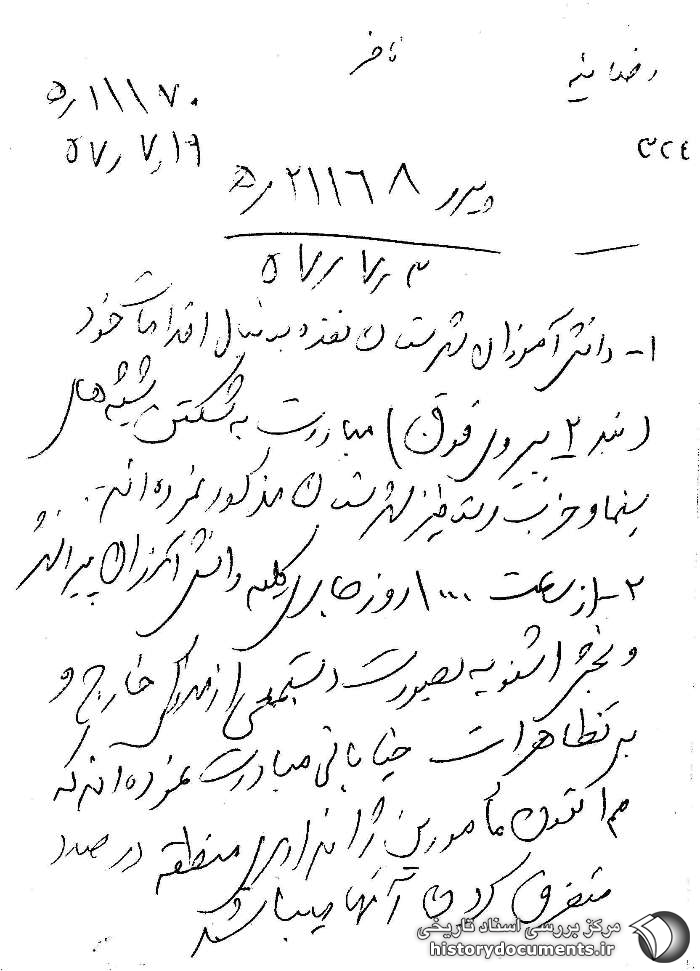 رضائیه
۳۲۴
۱۱۱۷۰ر۵
۵۷٫۷٫۱۹
پیرو ۲۱۱۶۸ر۵
۵۷٫۷٫۳
۱- دانش آموزان شهرستان نقده بدنبال اقدامات خود
(بند ۲ پیروی فوق) مبادرت به شکستن شیشه های
سینما و حزب رستاخیز شهرستان مذکور نموده اند.
۲- از ساعت ۱۰۰۰ روز جاری کلیه دانش آموزان پیرانشهر
و بخش اشنویه بصورت دستجمعی از مدارس خارج و
به تظاهرات خیابانی مبادرت نموده اند که
هم اکنون مأمورین ژاندارمری منطقه در صدد
متفرق کردن آنها میباشد
مرکز بررسی اسناد تاریخی
historydocuments.ir